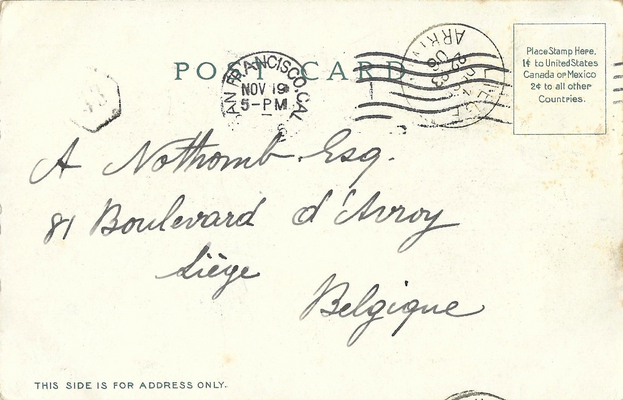 POST CARD
SAN FRANCISCO, CAL
NOV 19
5-PM
Place Stamp Here.
1¢ to United States
Canada or Mexico
2¢ to all other
Countries.
A Nothomb Esq.
81 Boulevard d'Avroy
Liège
Belgique
THIS SIDE IS FOR ADDRESS ONLY.